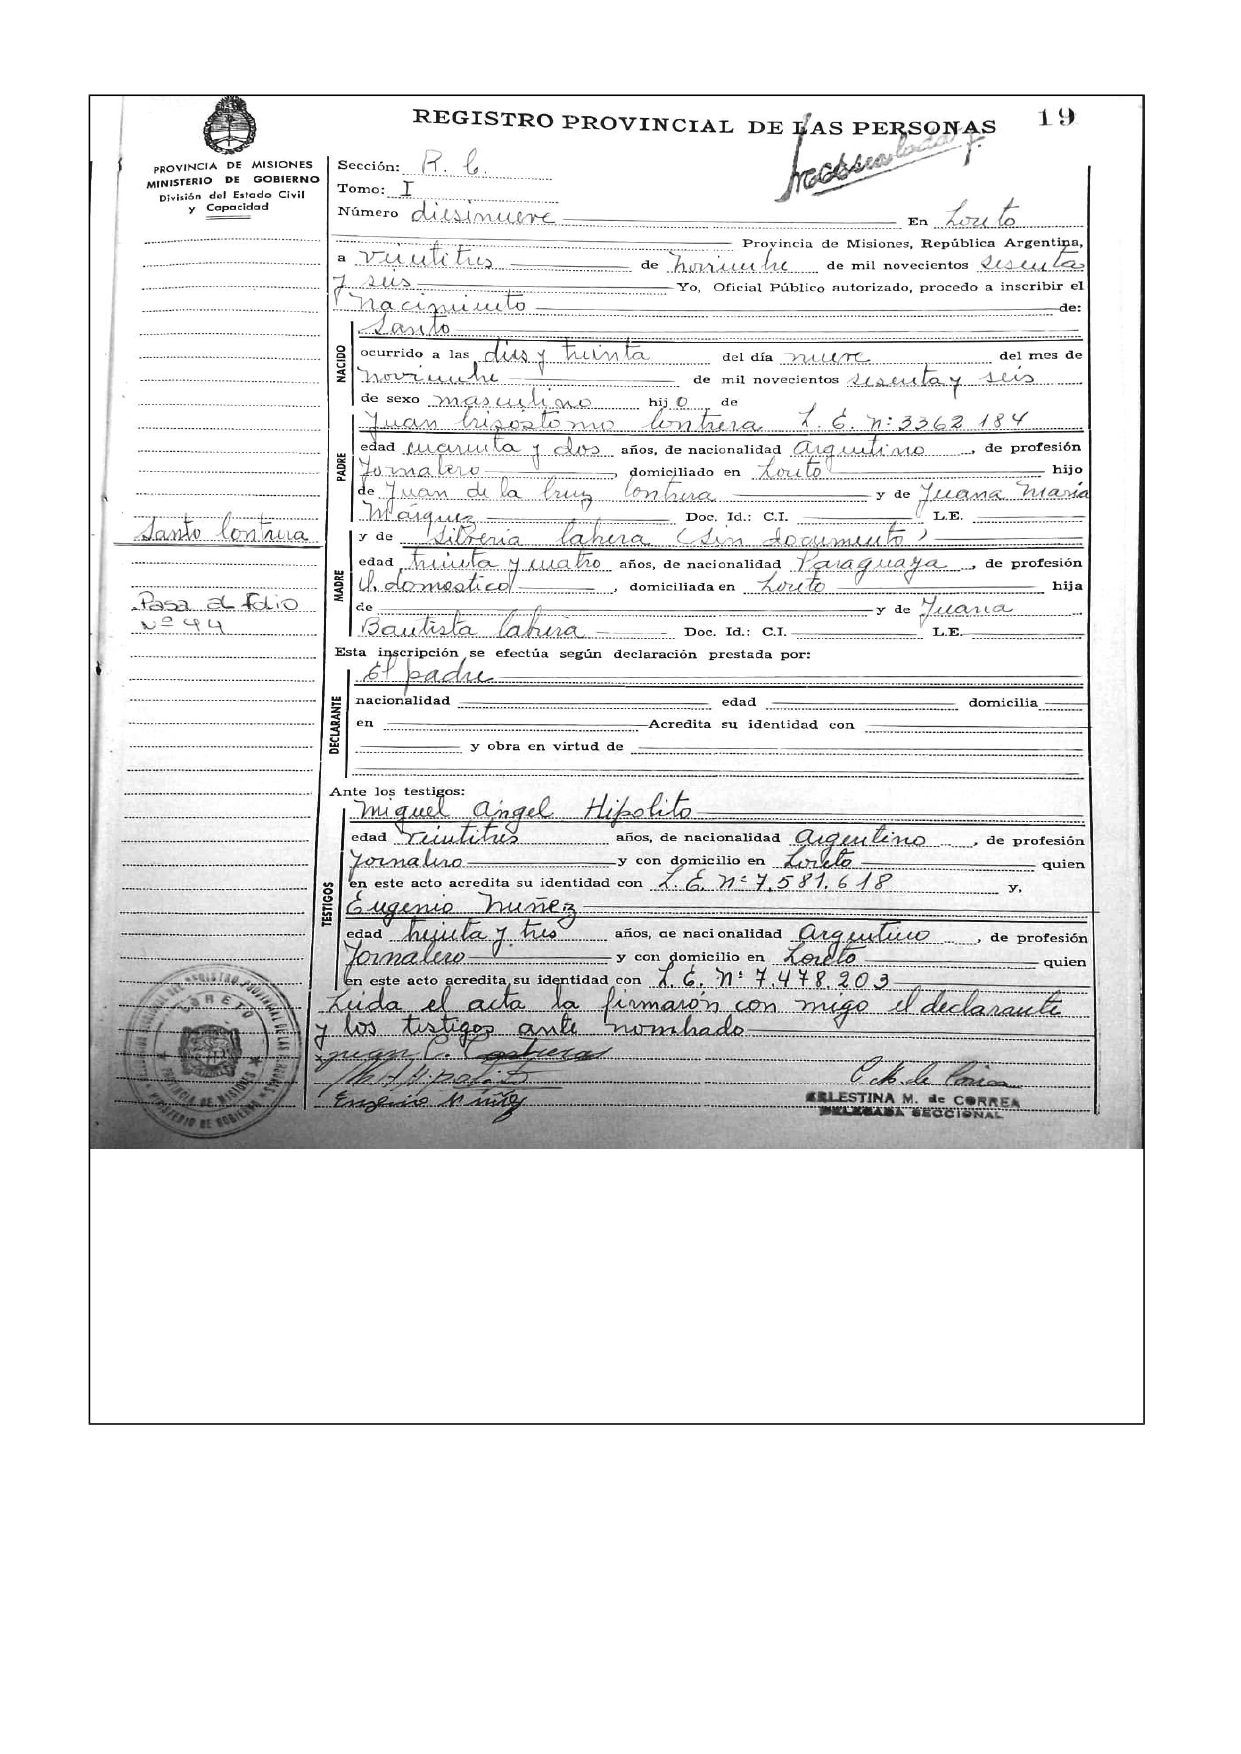 REGISTRO PROVINCIAL DE LAS PERSONAS 19
PROVINCIA DE MISIONES
MINISTERIO DE GOBIERNO
División del Estado Civil
y Capacidad
Sección: R. C.
Tomo: I
Número diesinueve En Loreto
Provincia de Misiones, República Argentina,
a veintitres de noviembre de mil novecientos sesenta
y seis Yo, Oficial Público autorizado, procedo a inscribir el
Nacimiento de:
NACIDO
Santo
ocurrido a las dies y treinta del día nueve del mes de
noviembre de mil novecientos sesenta y seis
de sexo masculino hijo de
PADRE
Juan Crisostomo Contrera L. E. n: 3362184
edad cuarenta y dos años, de nacionalidad Argentino, de profesión
Jornalero, domiciliado en Loreto hijo
de Juan de la Cruz Contrera y de Juana María
Márquez Doc. Id.: C.I. L.E.
Santo Contrera
MADRE
y de Silveria Cabera (sin documento)
edad treinta y cuatro años, de nacionalidad Paraguaya, de profesión
q. domestico, domiciliada en Loreto hija
Pasa al folio
Nº 44
de y de Juana
Bautista Cabera Doc. Id.: C.I. L.E.
Esta inscripción se efectúa según declaración prestada por:
DECLARANTE
El padre
nacionalidad edad domicilia
en Acredita su identidad con
y obra en virtud de
Ante los testigos:
TESTIGOS
Miguel Angel Hipolito
edad veintitres años, de nacionalidad Argentino, de profesión
Jornalero y con domicilio en Loreto quien
en este acto acredita su identidad con L. E. Nº 7.581.618 y,
Eugenio Nuñez
edad treinta y tres años, de nacionalidad Argentino, de profesión
Jornalero y con domicilio en Loreto quien
en este acto acredita su identidad con L. E. Nº 7.478.203
Leida el acta la firmarón con migo el declarante
y los testigos ante nombrado
Juan C. Contrera
M A Hipolito
Eugenio Nuñez
C. M. de Correa
CELESTINA M. de CORREA
DELEGADA SECCIONAL
LORETO
PROVINCIA DE MISIONES